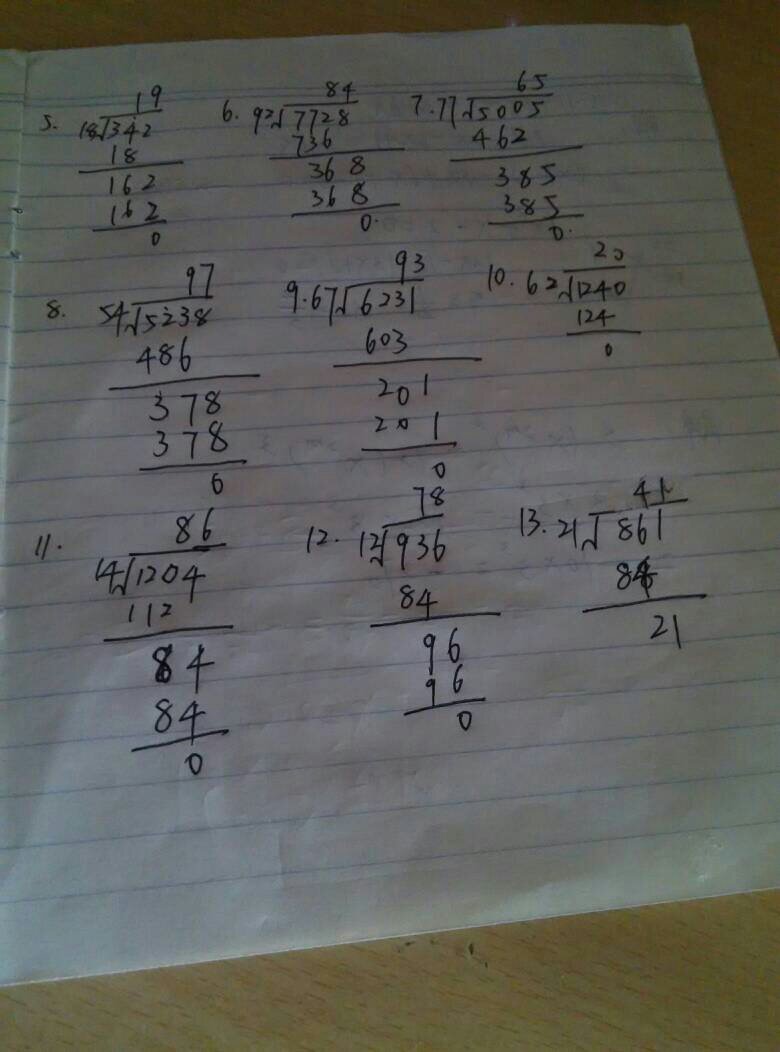 19 84 65
5. 18√342 6. 92√7728 7. 77√5005
18 736 462
162 368 385
162 368 385
0 0. 0.
97 93 20
8. 54√5238 9. 67√6231 10. 62√1240
486 603 124
378 201 0
378 201
0 0
86 78 41
11. 14√1204 12. 12√936 13. 21√861
112 84 84
84 96 21
84 96
0 0